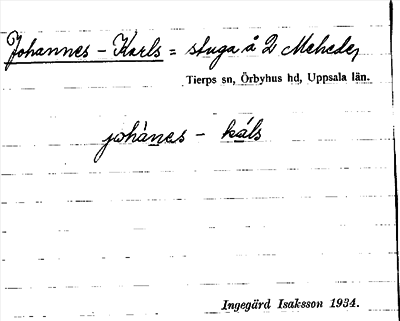 Johannes - Karls = stuga å 2 Mehede,
Tierps sn, Örbyhus hd, Uppsala län.
johànes - káls
Ingegärd Isaksson 1934.